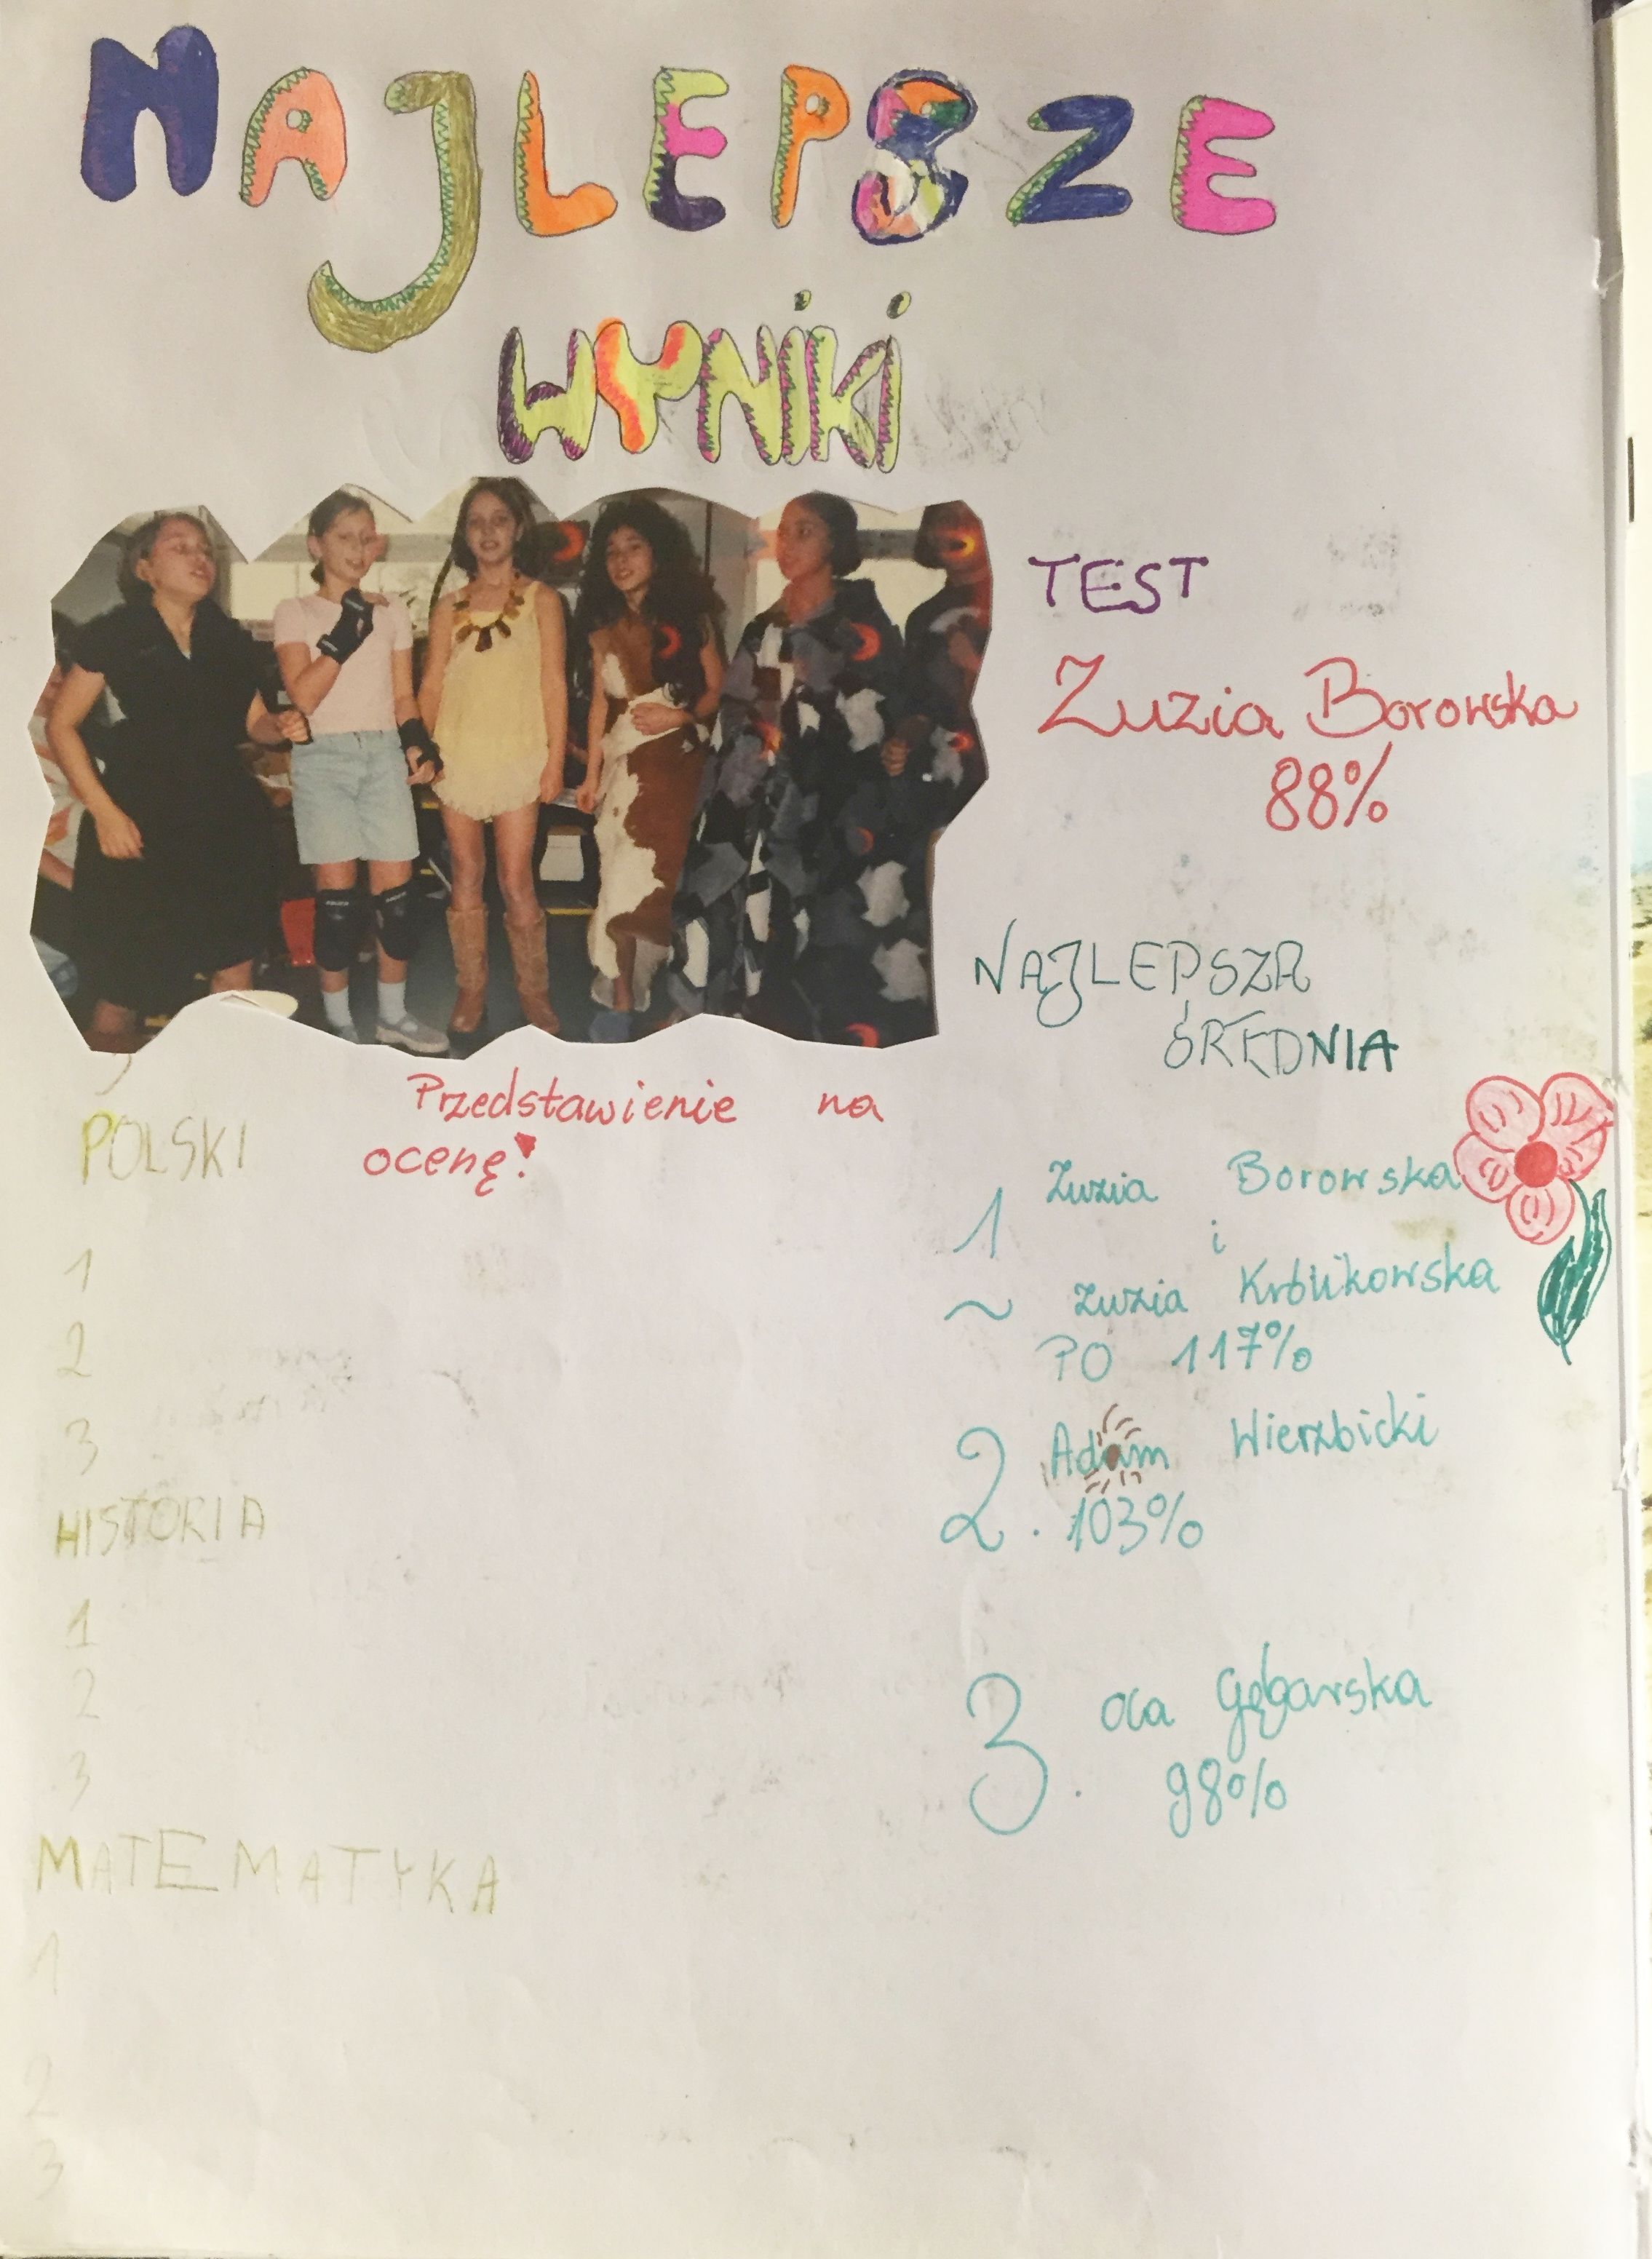 NAJLEPSZE
WYNIKI
TEST
Zuzia Borowska
88%
Przedstawienie na
ocenę!
POLSKI
1
2
3
HISTORIA
1
2
3
MATEMATYKA
1
2
3
NAJLEPSZA
ŚREDNIA
1 Zuzia Borowska
i
~ Zuzia Królikowska
PO 117%
2. Adam Wierzbicki
103%
3. Ola Gębarska
98%